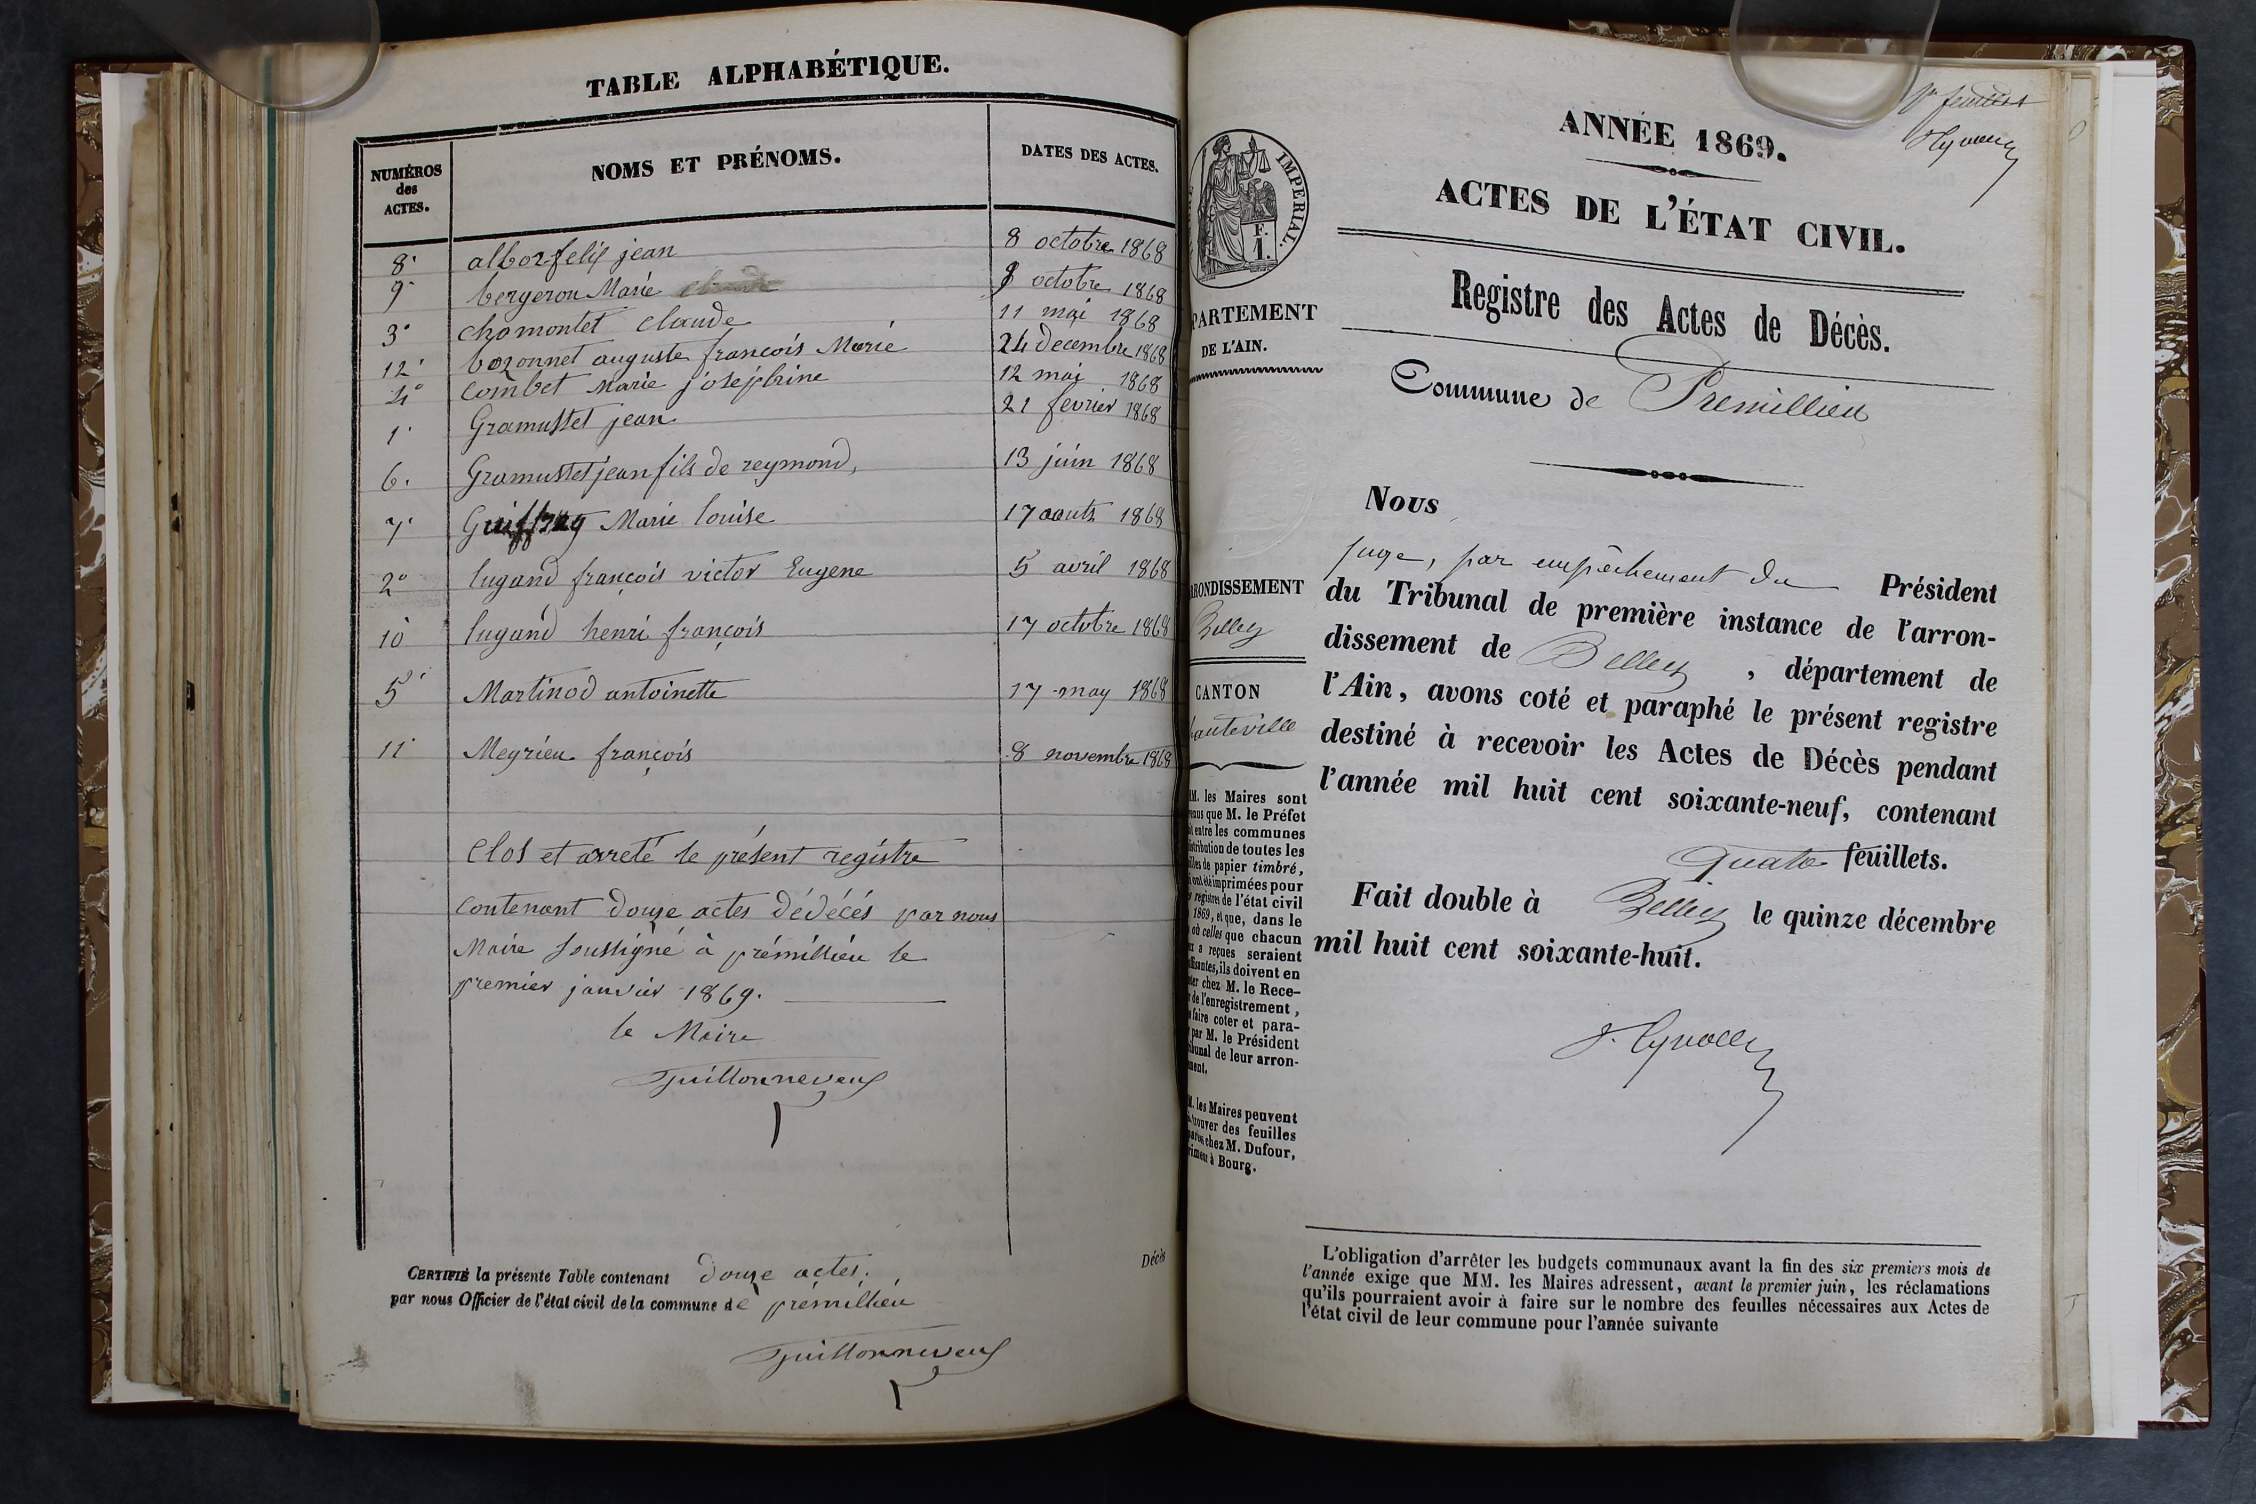 TABLE ALPHABÉTIQUE.
NUMÉROS des ACTES. NOMS ET PRÉNOMS. DATES DES ACTES.
8 jean 8 octobre 1868
9 bergeron Marie octobre 1868
3 chamontet claude 11 mai 1868
12 bozonnet auguste françois Marie 24 decembre 1868
4 combet Marie josephine 12 mai 1868
1 Gramustet jean 21 fevrier 1868
6. Gramustet jean fils de reymond, 13 juin 1868
7 Marie louise 17 aouts 1868
2 lugand françois victor Eugene 5 avril 1868
10 lugand henri françois 17 octobre 1868
5 Martinod antoinette 17 may 1868
11 Meyrieu françois 8 novembre 1868
Clos et arreté le présent registre
contenant douze actes dédécés par nous
Maire soussigné à prémillieu le
premier janvier 1869.
le Maire
Guillonneveuf
Décès
CERTIFIÉ la présente Table contenant douze actes.
par nous Officier de l'état civil de la commune de prémillieu
Guillonneveuf
1er feuillet
ANNÉE 1869.
ACTES DE L'ÉTAT CIVIL.
Registre des Actes de Décès.
Commune de Premillieu
IMPERIAL.
F.
1.
PARTEMENT
DE L'AIN.
RONDISSEMENT
Belley
CANTON
hauteville
MM. les Maires sont
venus que M. le Préfet
it entre les communes
istribution de toutes les
lles de papier timbré,
i ont été imprimées pour
s registres de l'état civil
1869, et que, dans le
où celles que chacun
ux a reçues seraient
ffisantes, ils doivent en
ter chez M. le Rece-
r de l'enregistrement,
faire coter et para-
par M. le Président
ibunal de leur arron-
ment.
M. les Maires peuvent
trouver des feuilles
parées chez M. Dufour,
rimeur à Bourg.
Nous
juge, par empêchement du Président
du Tribunal de première instance de l'arron-
dissement de Belley, département de
l'Ain, avons coté et paraphé le présent registre
destiné à recevoir les Actes de Décès pendant
l'année mil huit cent soixante-neuf, contenant
quatre feuillets.
Fait double à Belley le quinze décembre
mil huit cent soixante-huit.
L'obligation d'arrêter les budgets communaux avant la fin des six premiers mois de
l'année exige que MM. les Maires adressent, avant le premier juin, les réclamations
qu'ils pourraient avoir à faire sur le nombre des feuilles nécessaires aux Actes de
l'état civil de leur commune pour l'année suivante